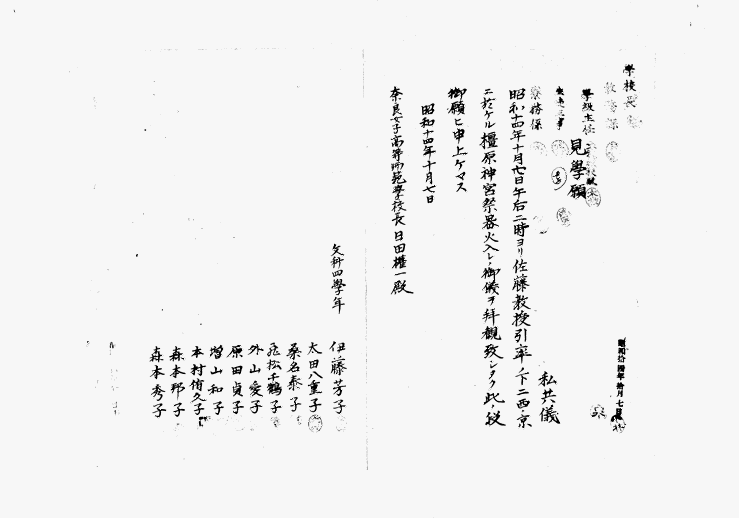 學校長
教務係
學級主任
寮務係
昭和拾四年拾月七日
見學願
私共儀
昭和十四年十月七日午后二時ヨリ佐藤教授引率ノ下ニ西ノ京
ニ於ケル橿原神宮祭器火入レノ御儀ヲ拜觀致シタク此ノ段
御願ヒ申上ケマス
昭和十四年十月七日
奈良女子高等師範學校長日田權一殿
文科四學年
伊藤芳子
太田八重子
桑名泰子
飛松千鶴子
外山愛子
原田貞子
增山和子
本村侑久子
森本邦子
森本秀子